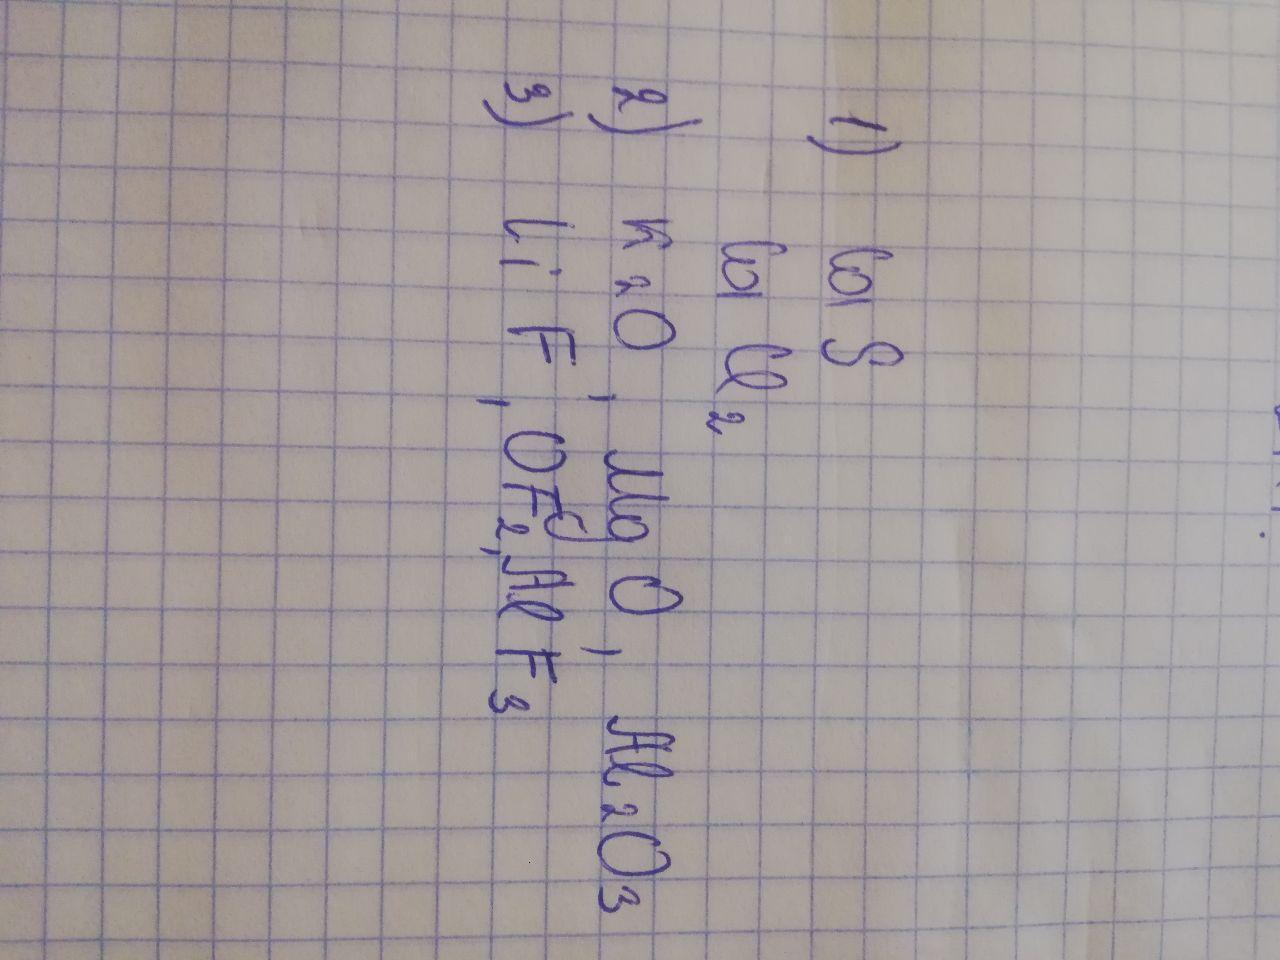 1) CaS
CaCl2
2) K2O, MgO, Al2O3
3) LiF, OF2, AlF3